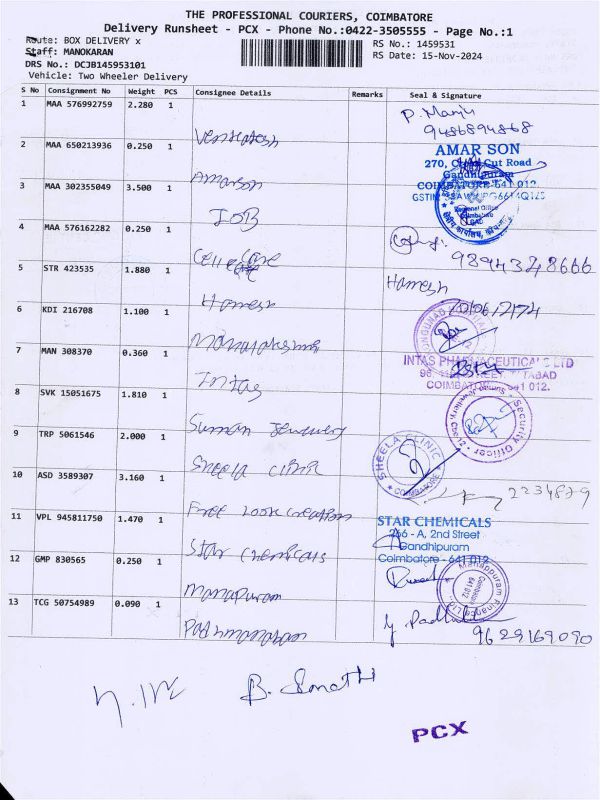 THE PROFESSIONAL COURIERS, COIMBATORE
Delivery Runsheet - PCX - Phone No.:0422-3505555 - Page No.:1
Route: BOX DELIVERY x
RS No.: 1459531
Staff: MANOKARAN
RS Date: 15-Nov-2024
DRS No.: DCJB145953101
Vehicle: Two Wheeler Delivery
S No Consignment No Weight PCS Consignee Details Remarks Seal & Signature
1 MAA 576992759 2.280 1
9486894868
Venkatesh
2 MAA 650213936 0.250 1
AMAR SON
270, Cut Road
Gandhipuram
Amarson
3 MAA 302355049 3.500 1
COIMBATORE-641 012
IOB
4 MAA 576162282 0.250 1
9894348666
Cell Care
5 STR 423535 1.880 1
Hamesh
Hamesh
6 KDI 216708 1.100 1
7 MAN 308370 0.360 1
INTAS PHARMACEUTICALS LTD
COIMBATORE 641 012.
Intas
8 SVK 15051675 1.810 1
Security Officer
Suman Jewellery
9 TRP 5061546 2.000 1
SHEELA CLINIC
COIMBATORE
Sheela clinic
10 ASD 3589307 3.160 1
2234879
Free Look creations
11 VPL 945811750 1.470 1
STAR CHEMICALS
266 - A, 2nd Street
Gandhipuram
Coimbatore - 641 012
Star chemicals
12 GMP 830565 0.250 1
Manappuram Finance Ltd.
Coimbatore
641 012
Manapuram
13 TCG 50754989 0.090 1
9629169090
Padmanaban
PCX